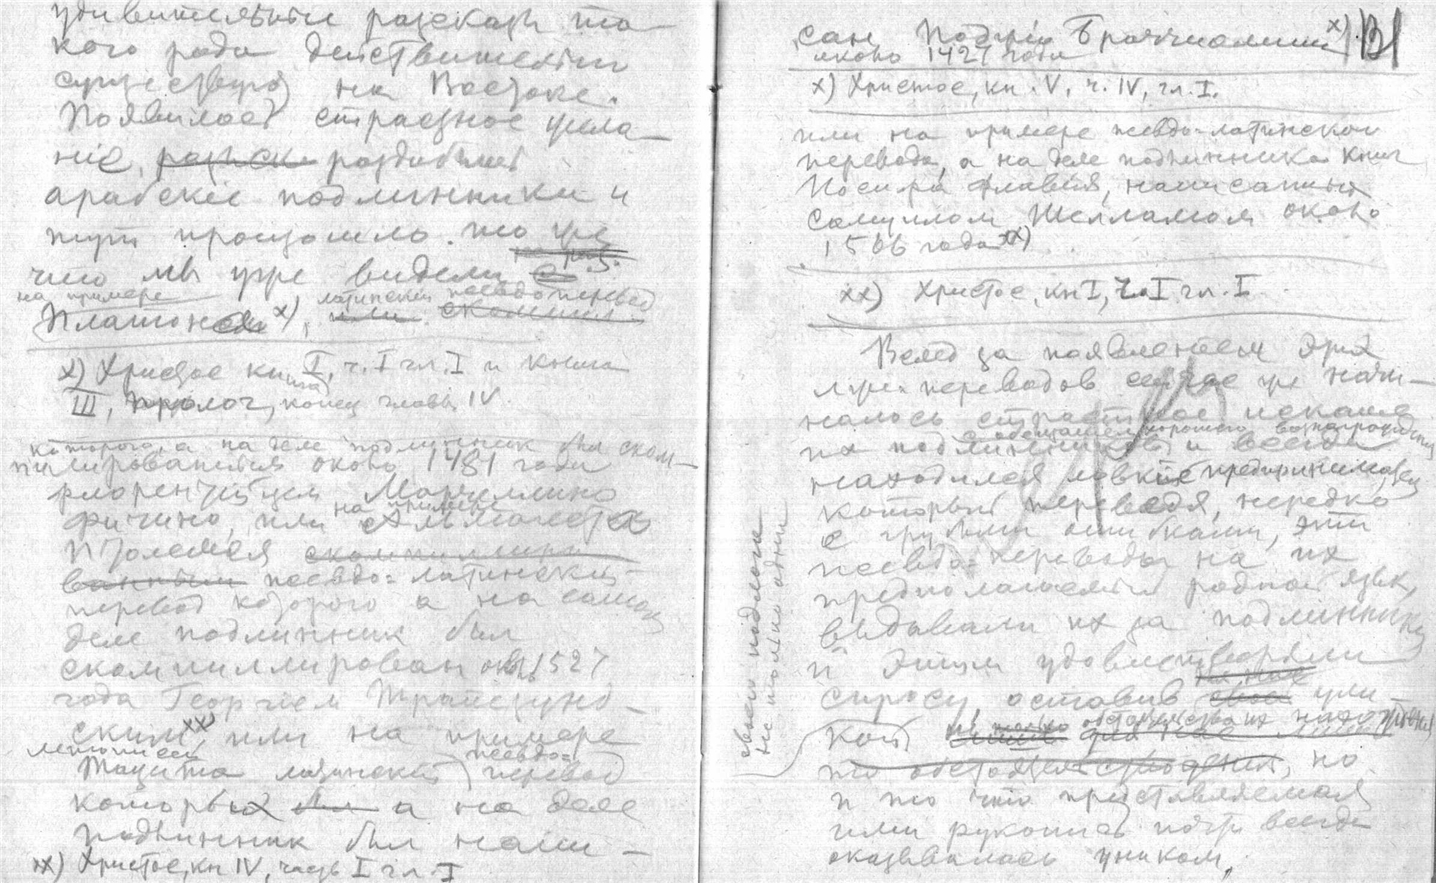 удивительные рассказы та-
кого рода действительно
существуют на Востоке.
Появилось страстное жела-
ние, раздобыть
арабские подлинники и
тут произошло то же
что мы уже видели
на примере латинский псевдоперевод
Платона x),
x) Христос, книга I, ч. I гл. I и книга
III, пролог, конец главы IV
которого, а на деле подлинник был ском-
пилирован около 1481 года
флорентийцем Марчеллино
Фичино, или на примере Альмагеста
Птолемея скомпилиро
ванным псевдо-латинский
перевод которого а на самом
деле подлинник был
скомпилирован около 1527
года Георгием Трапезунд-
ским xx) или на примере
летописей
Тацита латинский псевдо-перевод
которых а на деле
подлинник был напи-
xx) Христос, кн IV, часть I гл. I
сан Поджио Браччиолини x) 131
около 1421 года
x) Христос, кн. V, ч. IV, гл. I.
или на примере псевдо-латинского
перевода, а на деле подлинника книг
Иосифа Флавия, написанных
Самуилом Шелламом около
1566 года xx)
xx) Христос, кн I, ч. I гл. I
Вслед за появлением этих
переводов сейчас же начи-
налось страстное искание
их подлинников с обещанием хорошего вознаграждения и всегда
находился ловкий предприниматель
который переведя, нередко
с грубыми ошибками, эти
псевдо-переводы на их
предполагаемый родной язык,
выдавали их за подлинники
и этим удовлетворяли
спросу оставив ули-
кой
своего подлога
не только одни
но
и то что представляемая
ими рукопись почти всегда
оказывалась уником,